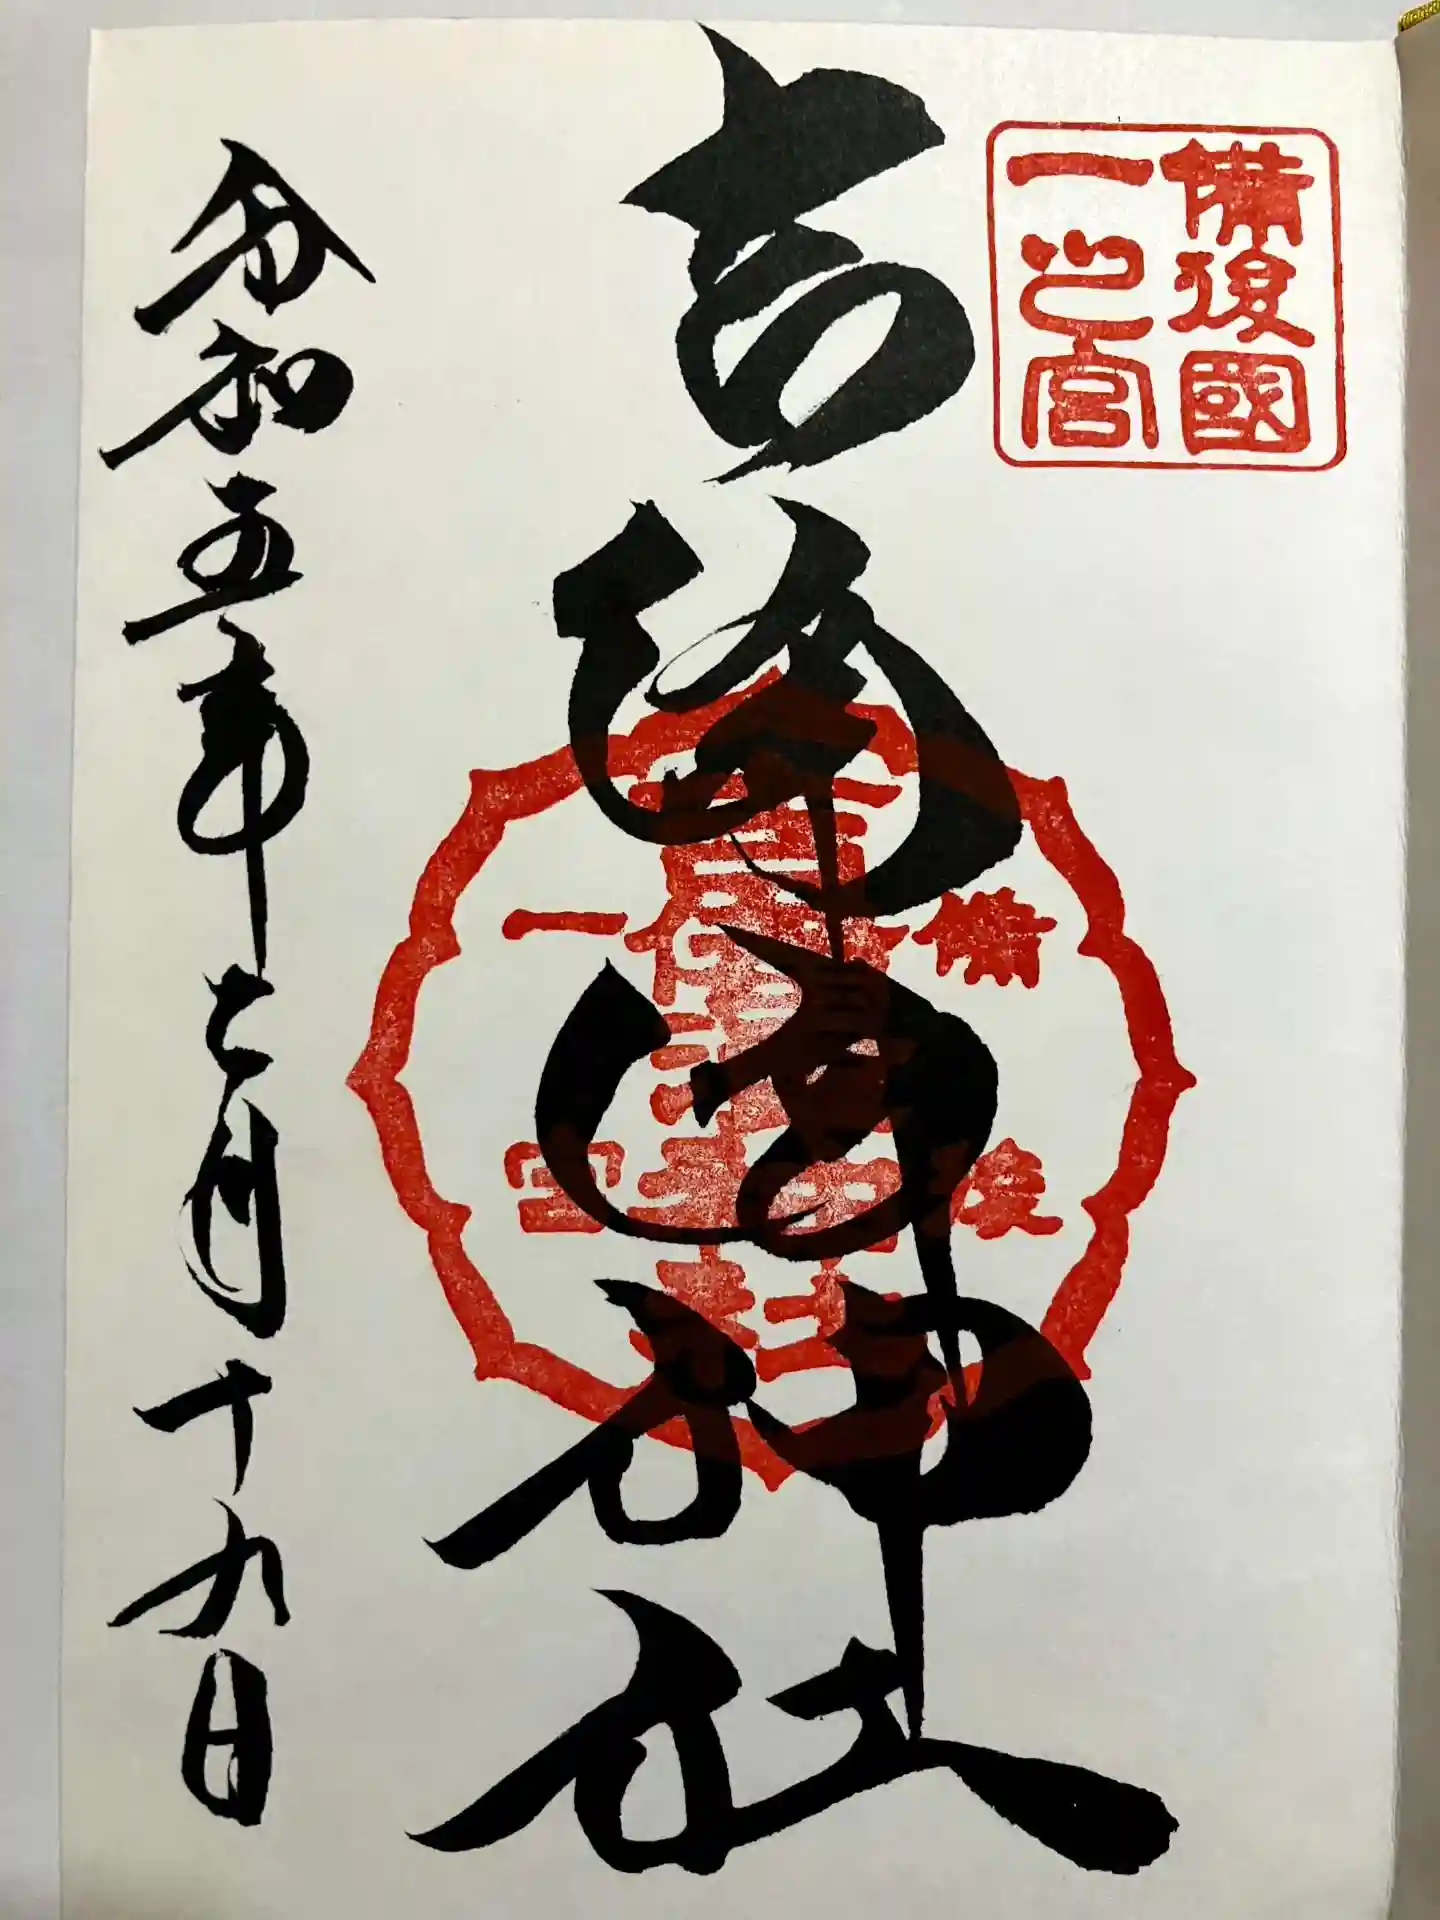 備後國
一之宮
吉備津神社
備後
吉備津神社
一宮
令和五年七月十九日